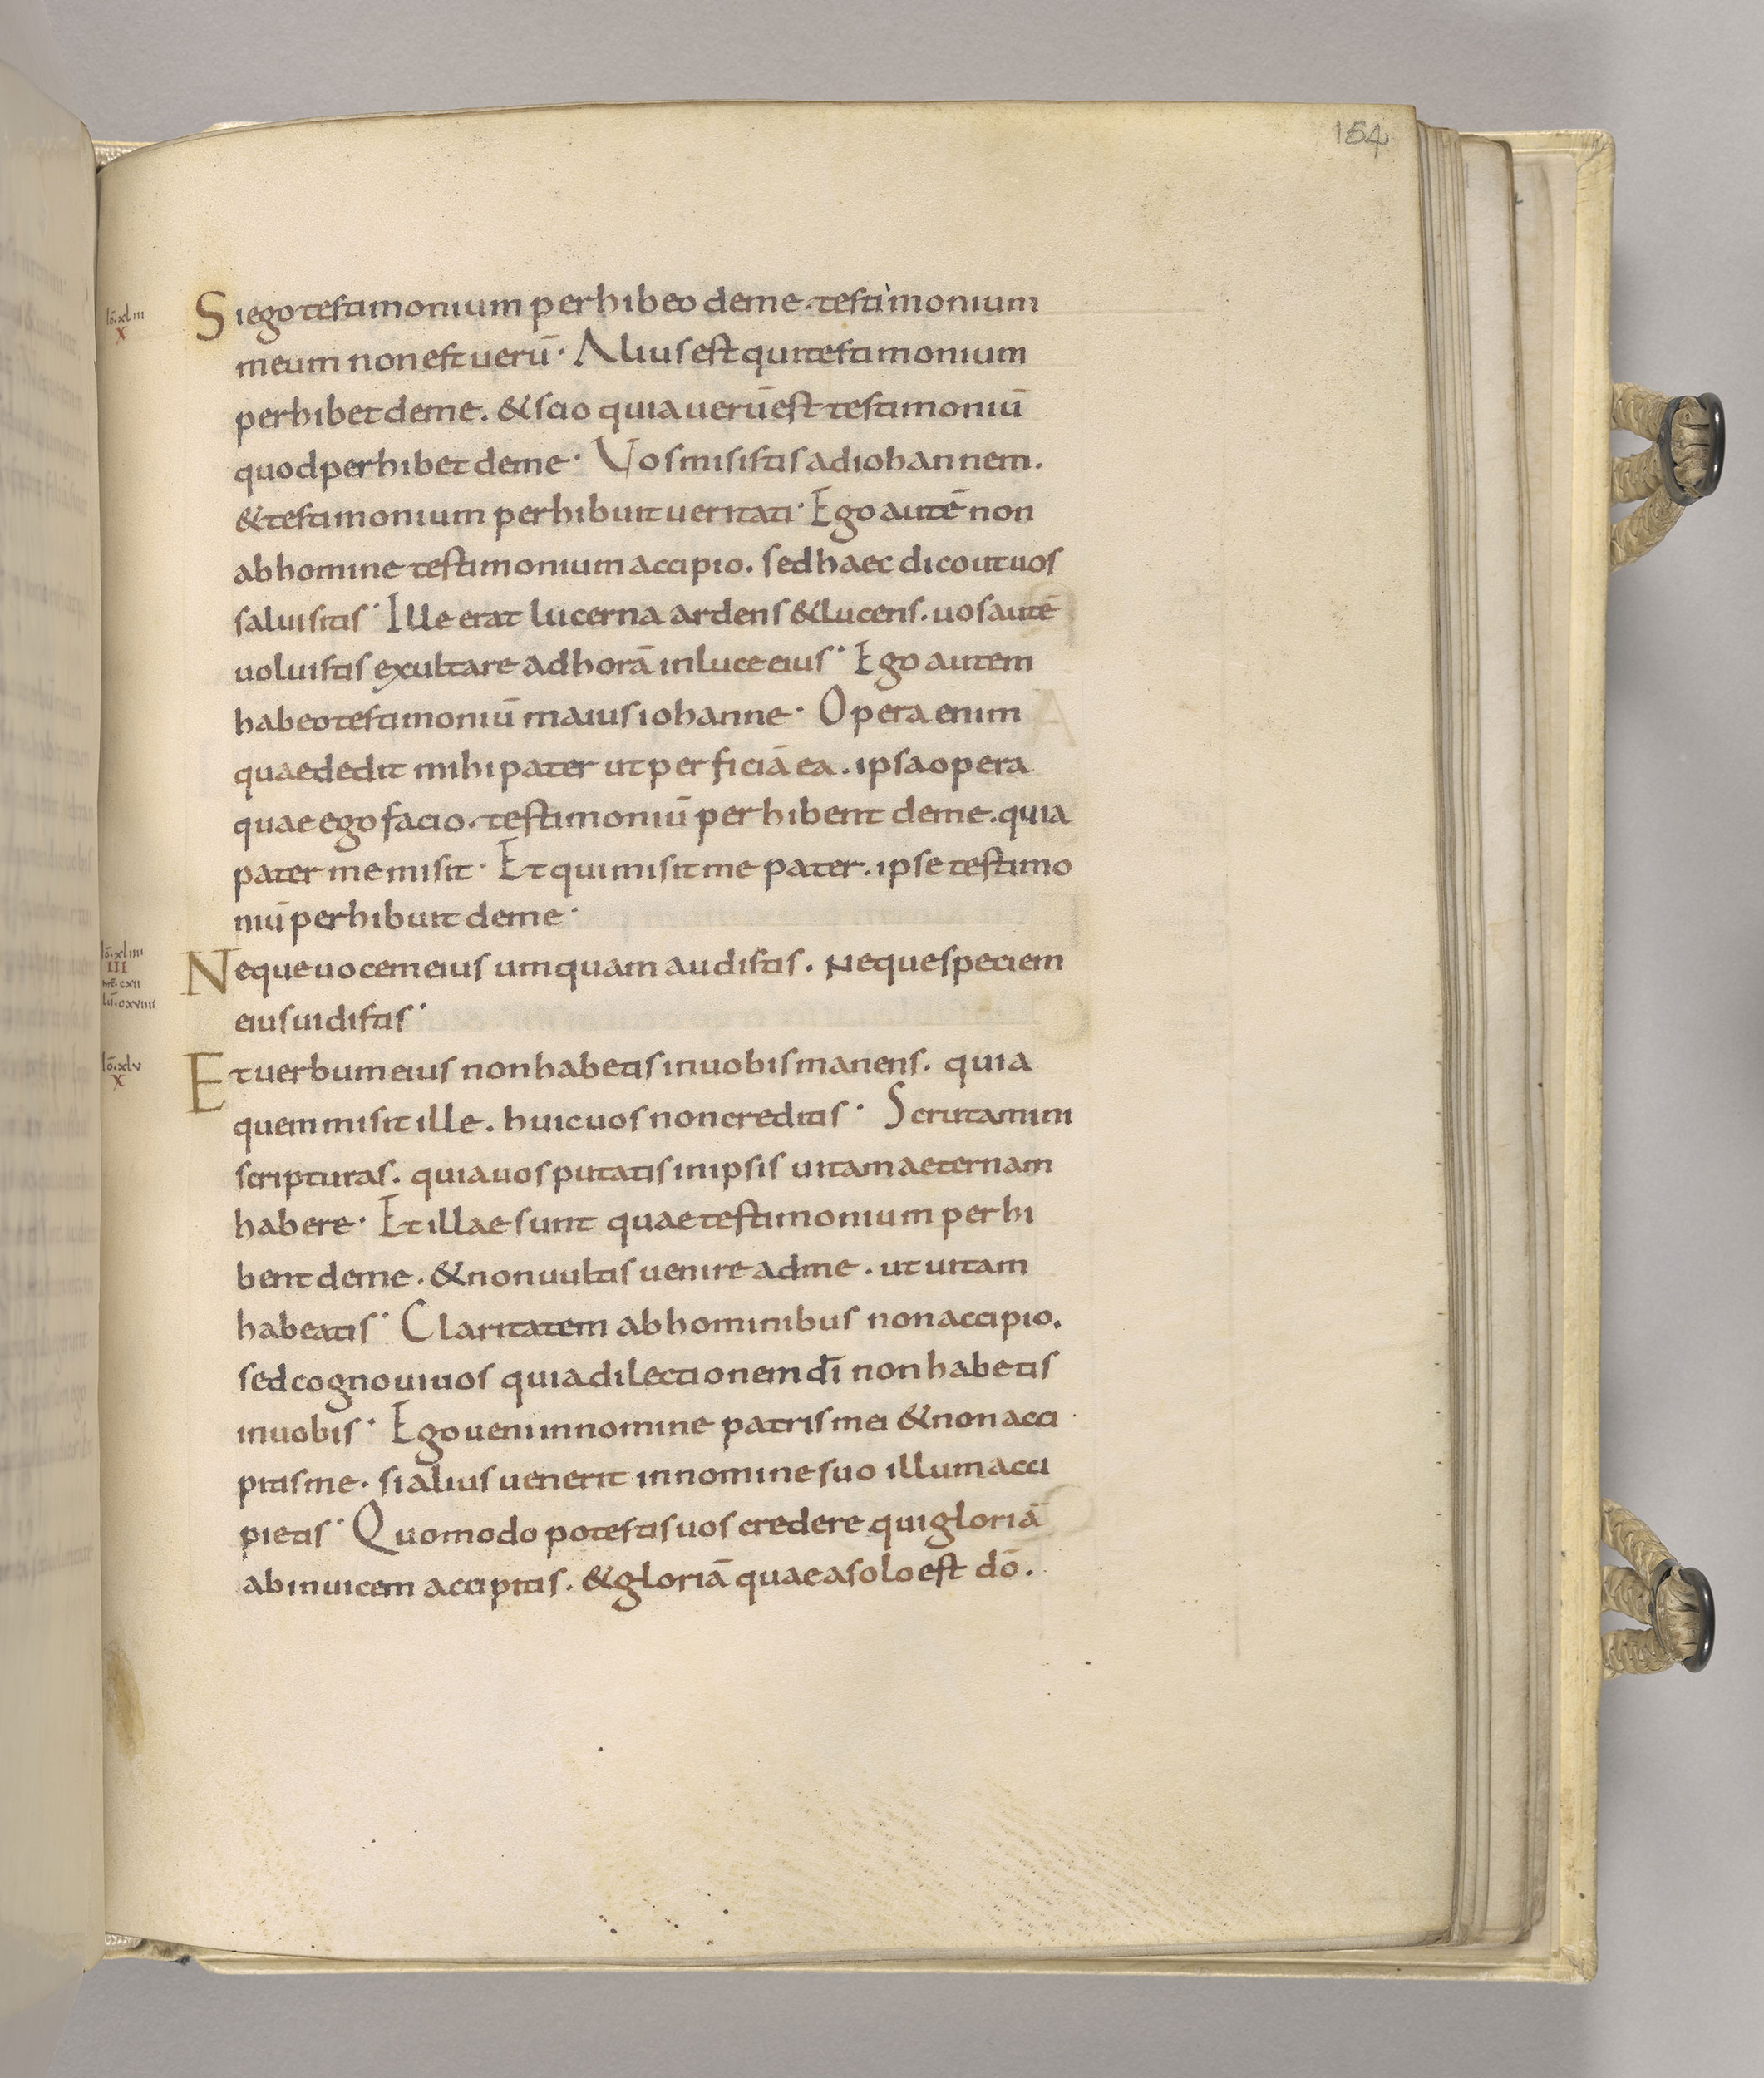 154
iō.xliii
X
Si ego testimonium perhibeo de me. testimonium
meum non est uerū. Alius est qui testimonium
perhibet de me. & scio quia uerū est testimoniū
quod perhibet de me. Vos misistis ad iohannem.
& testimonium perhibuit ueritati. Ego autē non
ab homine testimonium accipio. sed haec dico ut uos
salui sitis. Ille erat lucerna ardens & lucens. uos autē
uoluistis exultare ad horā in luce eius. Ego autem
habeo testimoniū maius iohanne. Opera enim
quae dedit mihi pater ut perficiā ea. ipsa opera
quae ego facio. testimoniū perhibent de me. quia
pater me misit. Et qui misit me pater. ipse testimo
niū perhibuit de me.
iō.xliiii
III
mt.cxii
Neque uocem eius umquam audistis. Neque speciem
eius uidistis.
iō.xlv
X
Et uerbum eius non habetis in uobis manens. quia
quem misit ille. huic uos non creditis. Scrutamini
scripturas. quia uos putatis in ipsis uitam aeternam
habere. Et illae sunt quae testimonium perhi
bent de me. & non uultis uenire ad me. ut uitam
habeatis. Claritatem ab hominibus non accipio.
sed cognoui uos quia dilectionem dī non habetis
in uobis. Ego ueni in nomine patris mei & non acci
pitis me. si alius uenerit in nomine suo illum acci
pietis. Quomodo potestis uos credere qui gloriā
ab inuicem accipitis. & gloriā quae a solo est dō.